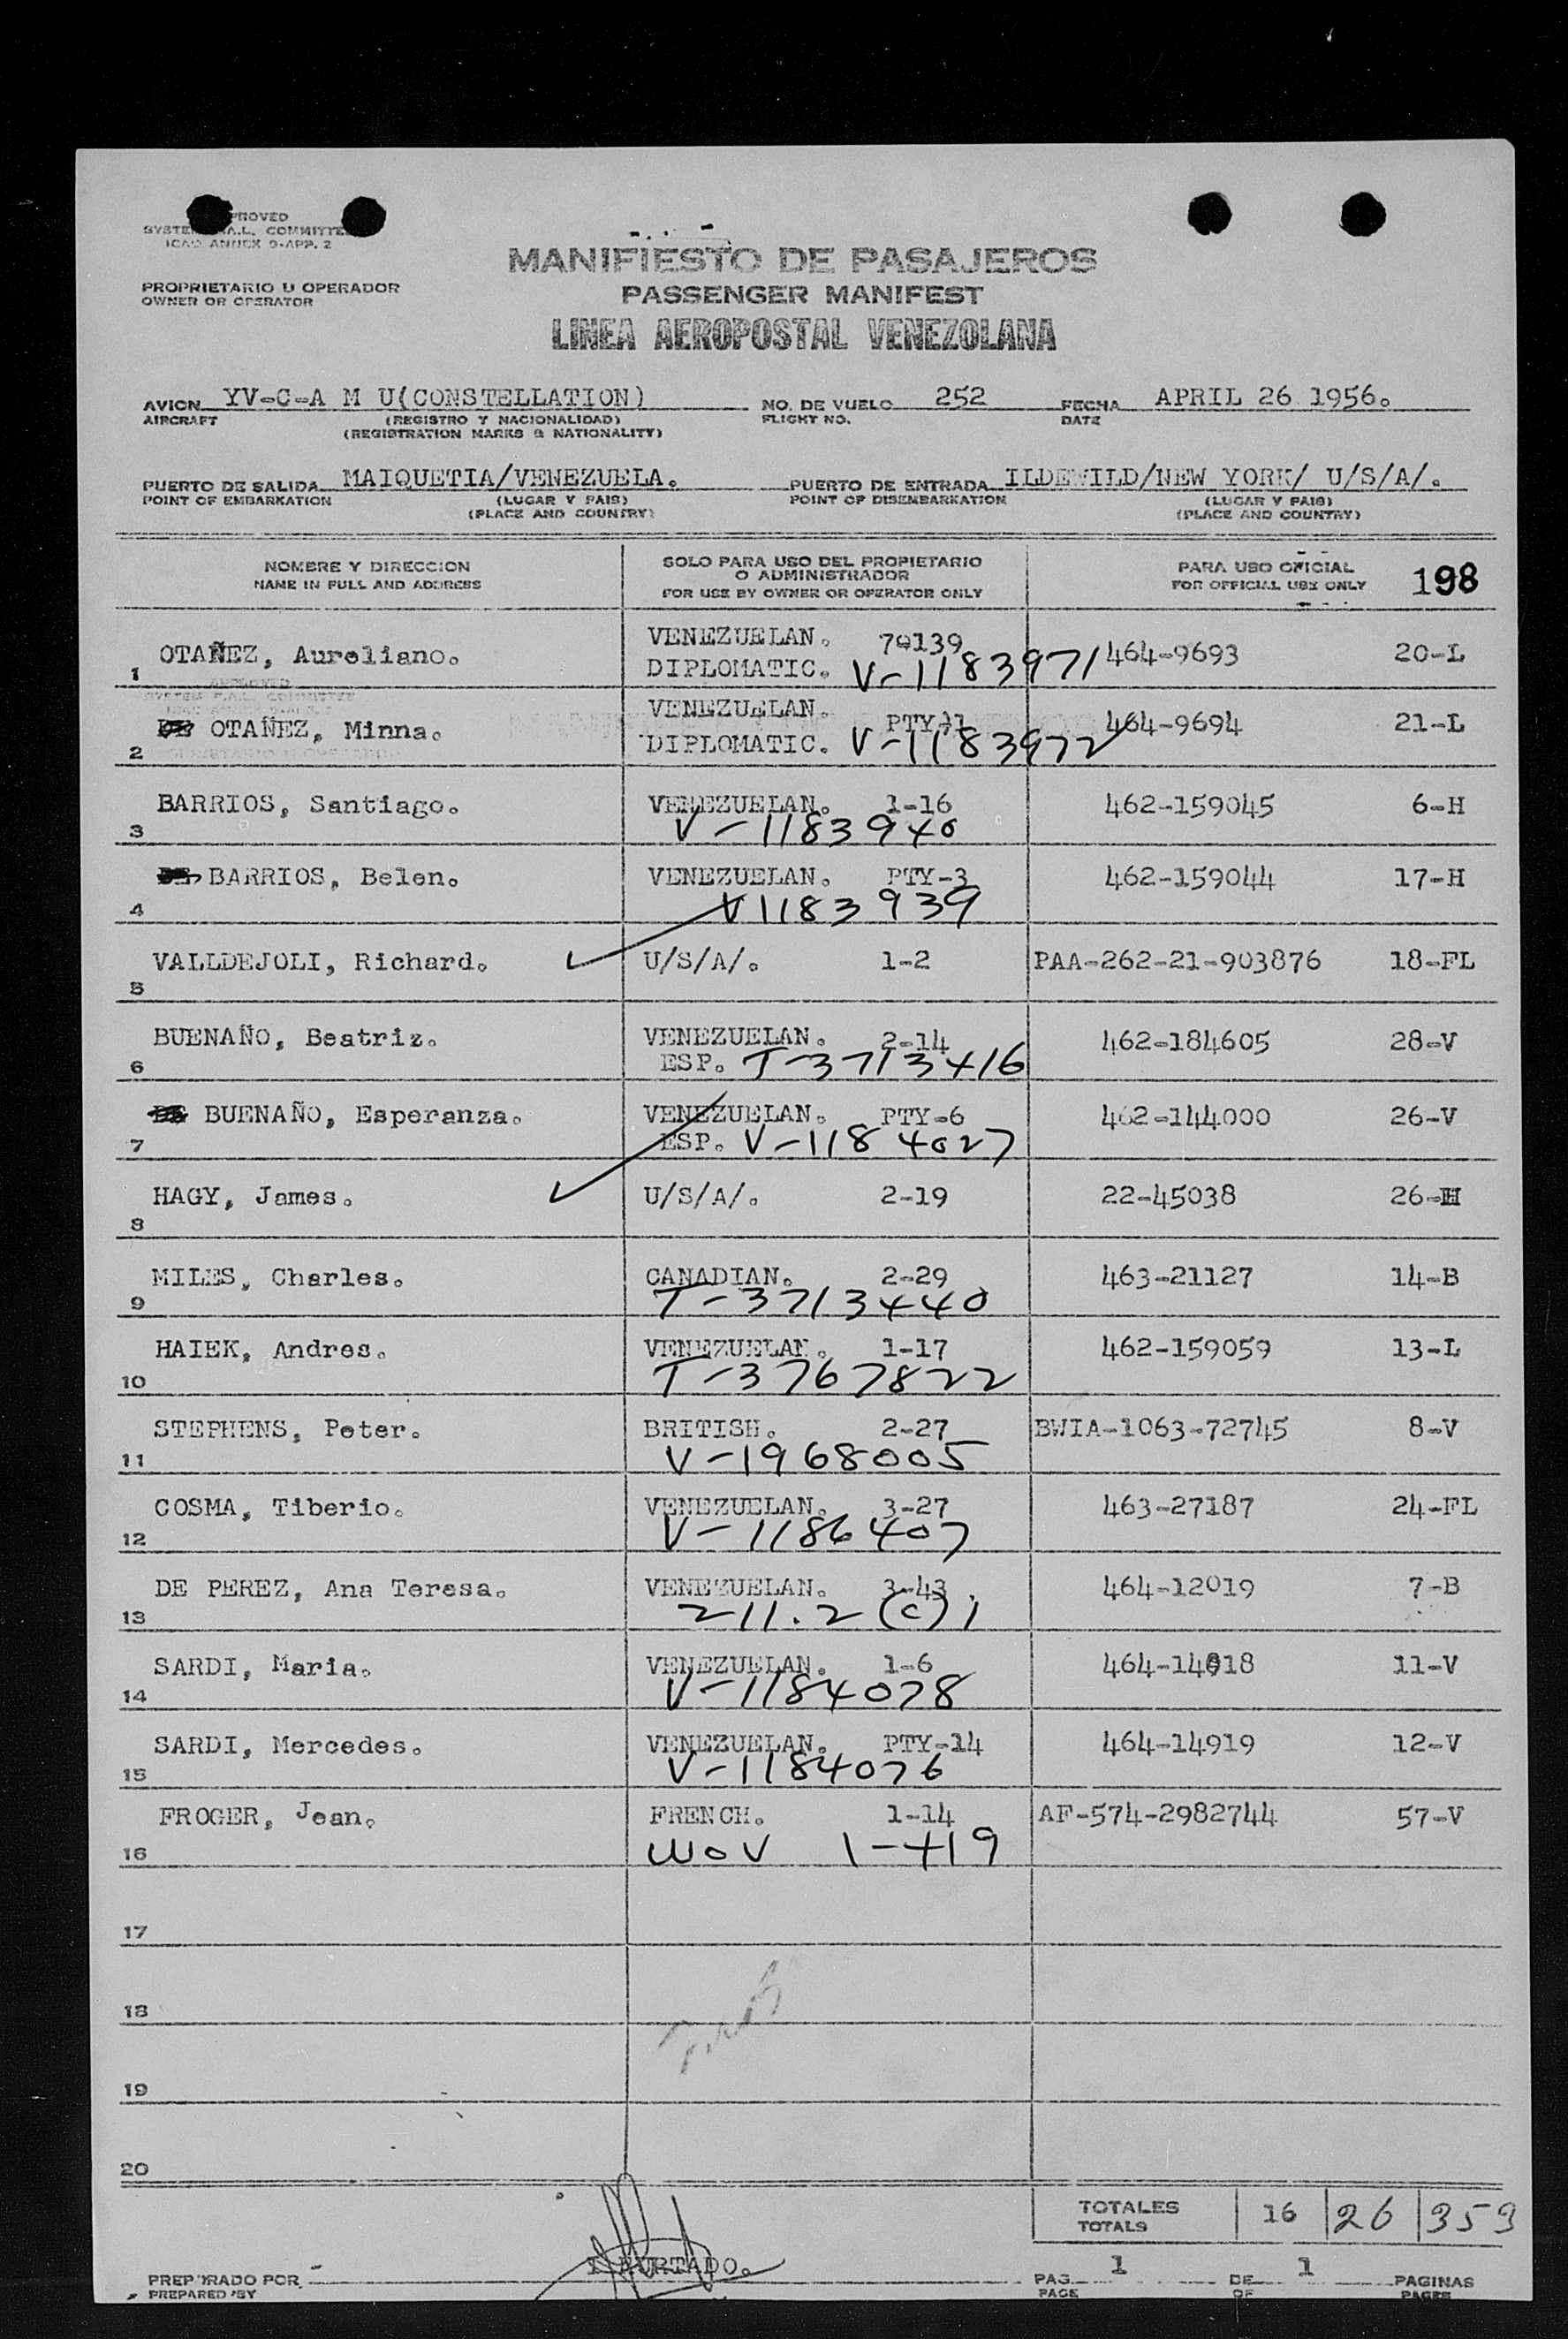 PROVED
SYSTEM F.A.L. COMMITTEE
ICAO ANNEX 9-APP. 2
MANIFIESTO DE PASAJEROS
PROPRIETARIO U OPERADOR
OWNER OR OPERATOR
PASSENGER MANIFEST
LINEA AEROPOSTAL VENEZOLANA
AVION YV-C-A M U(CONSTELLATION) NO. DE VUELO 252 FECHA APRIL 26 1956.
AIRCRAFT (REGISTRO Y NACIONALIDAD) FLIGHT NO. DATE
(REGISTRATION MARKS & NATIONALITY)
PUERTO DE SALIDA MAIQUETIA/VENEZUELA. PUERTO DE ENTRADA ILDEWILD/NEW YORK/ U/S/A/.
POINT OF EMBARKATION (LUGAR Y PAIS) POINT OF DISEMBARKATION (LUGAR Y PAIS)
(PLACE AND COUNTRY) (PLACE AND COUNTRY)
NOMBRE Y DIRECCION SOLO PARA USO DEL PROPIETARIO PARA USO OFICIAL
O ADMINISTRADOR
NAME IN FULL AND ADDRESS FOR USE BY OWNER OR OPERATOR ONLY FOR OFFICIAL USE ONLY 198
VENEZUELAN. 70139
1 OTAÑEZ, Aureliano. DIPLOMATIC. V-1183971 464-9693 20-L
VENEZUELAN. PTY-1
2 OTAÑEZ, Minna. DIPLOMATIC. V-1183972 464-9694 21-L
3 BARRIOS, Santiago. VENEZUELAN. 1-16 462-159045 6-H
V-1183940
4 BARRIOS, Belen. VENEZUELAN. PTY-3 462-159044 17-H
V1183939
5 VALLDEJOLI, Richard. U/S/A/. 1-2 PAA-262-21-903876 18-FL
6 BUENAÑO, Beatriz. VENEZUELAN. 2-14 462-184605 28-V
ESP. T-3713416
7 BUENAÑO, Esperanza. VENEZUELAN. PTY-6 462-144000 26-V
ESP. V-1184027
8 HAGY, James. U/S/A/. 2-19 22-45038 26-H
9 MILES, Charles. CANADIAN. 2-29 463-21127 14-B
T-3713440
10 HAIEK, Andres. VENEZUELAN. 1-17 462-159059 13-L
T-3767822
11 STEPHENS, Peter. BRITISH. 2-27 BWIA-1063-72745 8-V
V-1968005
12 COSMA, Tiberio. VENEZUELAN. 3-27 463-27187 24-FL
V-1186407
13 DE PEREZ, Ana Teresa. VENEZUELAN. 3-43 464-12019 7-B
211.2(c)1
14 SARDI, Maria. VENEZUELAN. 1-6 464-14918 11-V
V-1184078
15 SARDI, Mercedes. VENEZUELAN. PTY-14 464-14919 12-V
V-1184076
16 FROGER, Jean. FRENCH. 1-14 AF-574-2982744 57-V
WOV 1-419
17
18
19
20
TOTALES 16 26 353
TOTALS
HURTADO.
PREPARADO POR PAG. 1 DE 1 PAGINAS
PREPARED BY PAGE OF PAGES